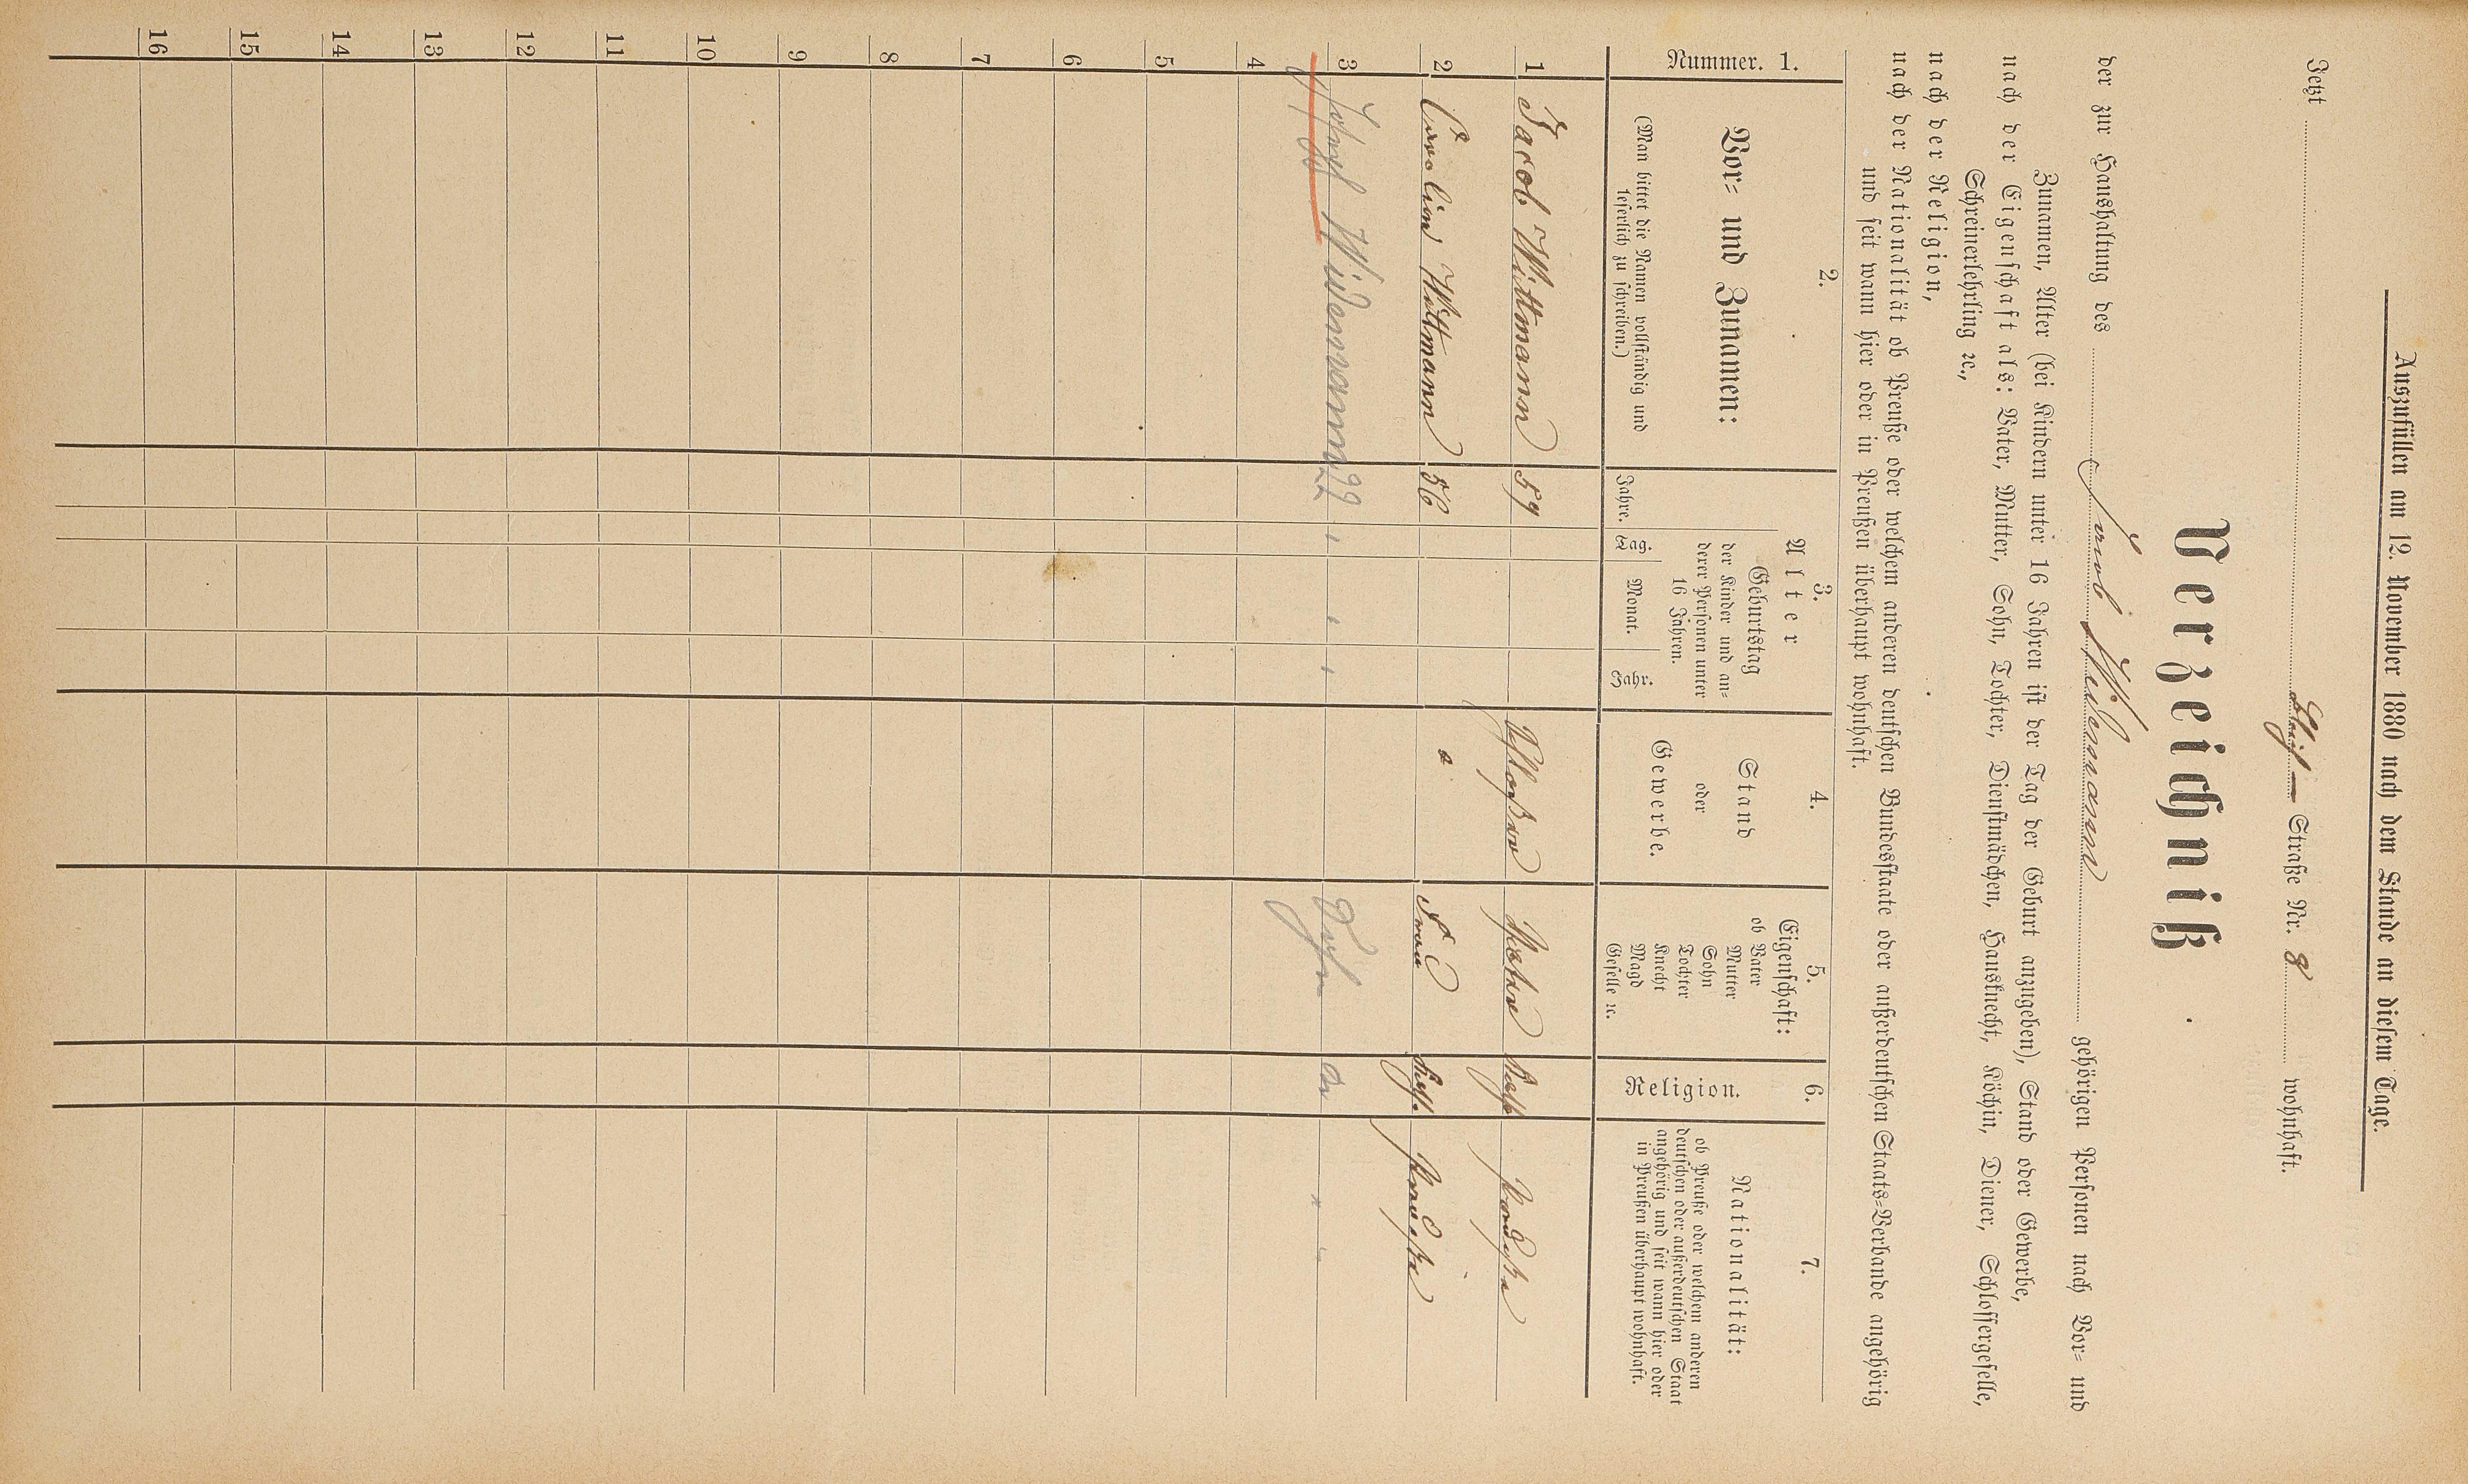 Auszufüllen am 12. November 1880 nach dem Stande an diesem Tage.
Jetzt Straße Nr. 8 wohnhaft.
Verzeichniß
der zur Haushaltung des Jacob gehörigen Personen nach Vor- und
Zunamen, Alter (bei Kindern unter 16 Jahren ist der Tag der Geburt anzugeben), Stand oder Gewerbe,
nach der Eigenschaft als: Vater, Mutter, Sohn, Tochter, Dienstmädchen, Hausknecht, Köchin, Diener, Schlossergeselle,
Schreinerlehrling ꝛc.,
nach der Religion,
nach der Nationalität ob Preuße oder welchem anderen deutschen Bundesstaate oder außerdeutschen Staats-Verbande angehörig
und seit wann hier oder in Preußen überhaupt wohnhaft.
Nummer. 1.
2.
Vor- und Zunamen:
(Man bittet die Namen vollständig und
leserlich zu schreiben.)
3.
Alter
Jahre.
Geburtstag
der Kinder und an-
derer Personen unter
16 Jahren.
Tag.
Monat.
Jahr.
4.
Stand
oder
Gewerbe.
5.
Eigenschaft:
ob Vater
Mutter
Sohn
Tochter
Knecht
Magd
Geselle ꝛc.
6.
Religion.
7.
Nationalität:
ob Preuße oder welchem anderen
deutschen oder außerdeutschen Staat
angehörig und seit wann hier oder
in Preußen überhaupt wohnhaft.
1 Jacob Wittmann 59 Schlosser Vater Kath Preuße
2 Caroline Wittmann 56 " Frau Kath. Preuße
3 Joseph Widemann 22 " " " Sohn " "
4
5
6
7
8
9
10
11
12
13
14
15
16